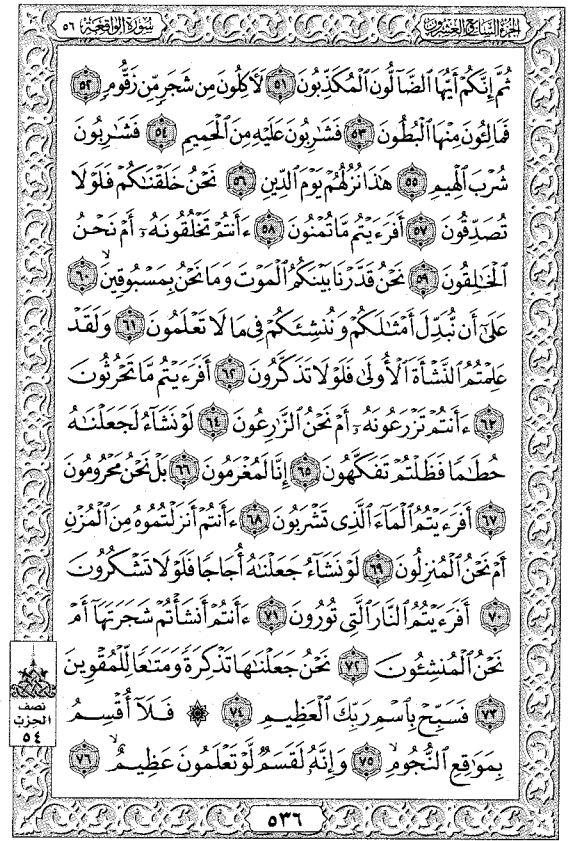 الجزء السابع والعشرون
سورة الواقعة ٥٦
ثُمَّ إِنَّكُمْ أَيُّهَا ٱلضَّآلُّونَ ٱلْمُكَذِّبُونَ ٥١ لَأَكِلُونَ مِن شَجَرٍ مِّن زَقُّومٍ ٥٢
فَمَالِـُٔونَ مِنْهَا ٱلْبُطُونَ ٥٣ فَشَٰرِبُونَ عَلَيْهِ مِنَ ٱلْحَمِيمِ ٥٤ فَشَٰرِبُونَ
شُرْبَ ٱلْهِيمِ ٥٥ هَٰذَا نُزُلُهُمْ يَوْمَ ٱلدِّينِ ٥٦ نَحْنُ خَلَقْنَٰكُمْ فَلَوْلَا
تُصَدِّقُونَ ٥٧ أَفَرَءَيْتُم مَّا تُمْنُونَ ٥٨ ءَأَنتُمْ تَخْلُقُونَهُۥٓ أَمْ نَحْنُ
ٱلْخَٰلِقُونَ ٥٩ نَحْنُ قَدَّرْنَا بَيْنَكُمُ ٱلْمَوْتَ وَمَا نَحْنُ بِمَسْبُوقِينَ ٦٠
عَلَىٰٓ أَن نُّبَدِّلَ أَمْثَٰلَكُمْ وَنُنشِئَكُمْ فِى مَا لَا تَعْلَمُونَ ٦١ وَلَقَدْ
عَلِمْتُمُ ٱلنَّشْأَةَ ٱلْأُولَىٰ فَلَوْلَا تَذَكَّرُونَ ٦٢ أَفَرَءَيْتُم مَّا تَحْرُثُونَ
٦٣ ءَأَنتُمْ تَزْرَعُونَهُۥٓ أَمْ نَحْنُ ٱلزَّٰرِعُونَ ٦٤ لَوْ نَشَآءُ لَجَعَلْنَٰهُ
حُطَٰمًا فَظَلْتُمْ تَفَكَّهُونَ ٦٥ إِنَّا لَمُغْرَمُونَ ٦٦ بَلْ نَحْنُ مَحْرُومُونَ
٦٧ أَفَرَءَيْتُمُ ٱلْمَآءَ ٱلَّذِى تَشْرَبُونَ ٦٨ ءَأَنتُمْ أَنزَلْتُمُوهُ مِنَ ٱلْمُزْنِ
أَمْ نَحْنُ ٱلْمُنزِلُونَ ٦٩ لَوْ نَشَآءُ جَعَلْنَٰهُ أُجَاجًا فَلَوْلَا تَشْكُرُونَ
٧٠ أَفَرَءَيْتُمُ ٱلنَّارَ ٱلَّتِى تُورُونَ ٧١ ءَأَنتُمْ أَنشَأْتُمْ شَجَرَتَهَآ أَمْ
نَحْنُ ٱلْمُنشِـُٔونَ ٧٢ نَحْنُ جَعَلْنَٰهَا تَذْكِرَةً وَمَتَٰعًا لِّلْمُقْوِينَ
٧٣ فَسَبِّحْ بِٱسْمِ رَبِّكَ ٱلْعَظِيمِ ٧٤ ۞ فَلَآ أُقْسِمُ
بِمَوَٰقِعِ ٱلنُّجُومِ ٧٥ وَإِنَّهُۥ لَقَسَمٌ لَّوْ تَعْلَمُونَ عَظِيمٌ ٧٦
نصف
الحزب
٥٤
٥٣٦